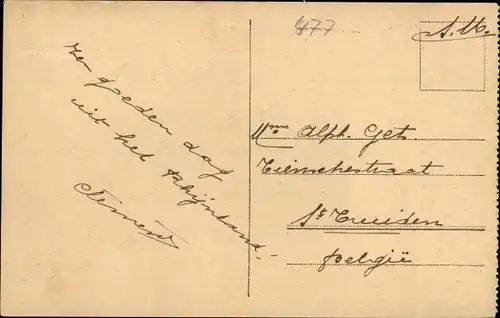 477
S.M.
een goeden dag
uit het Rhijnland.
Clement
Mme Alph. Gets
Tienschestraat
St Truiden
België